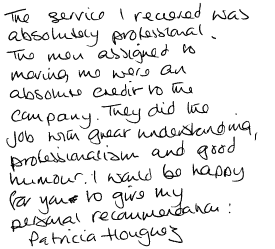 The service I received was
absolutely professional.
The men assigned to
moving me were an
absolute credit to the
company. They did the
job with great understanding,
professionalism and good
humour. I would be happy
for you to give my
personal recommendation:
Patricia